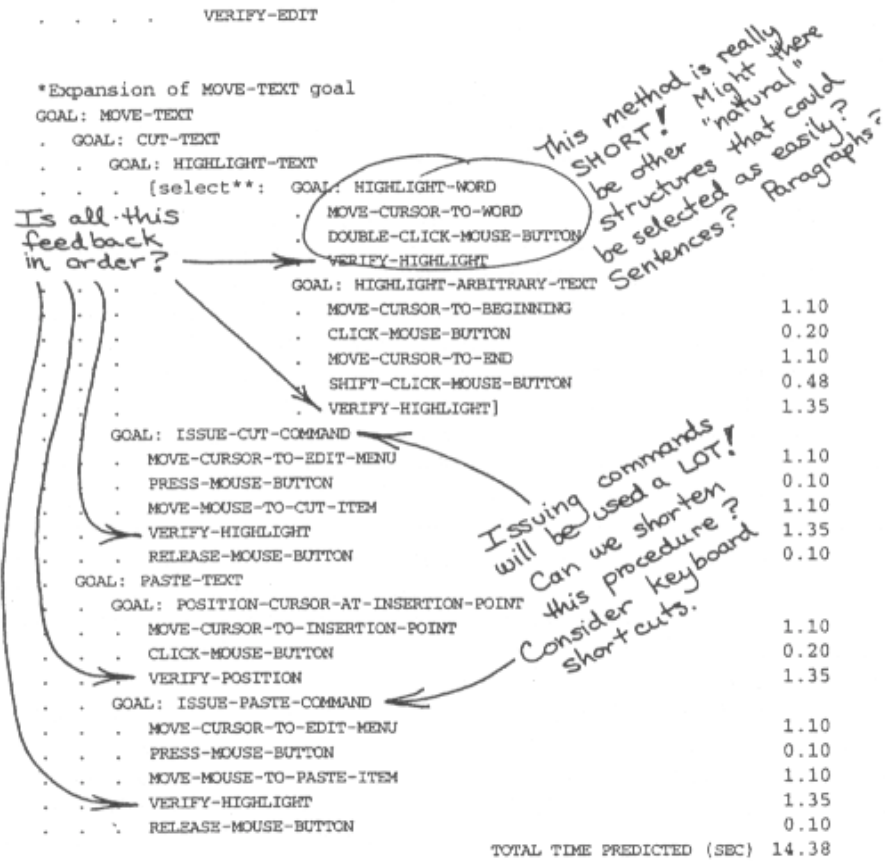 . . . . VERIFY-EDIT
*Expansion of MOVE-TEXT goal
GOAL: MOVE-TEXT
. GOAL: CUT-TEXT
. . GOAL: HIGHLIGHT-TEXT
. . . [select**: GOAL: HIGHLIGHT-WORD
. MOVE-CURSOR-TO-WORD
. DOUBLE-CLICK-MOUSE-BUTTON
. VERIFY-HIGHLIGHT
GOAL: HIGHLIGHT-ARBITRARY-TEXT
. MOVE-CURSOR-TO-BEGINNING 1.10
. CLICK-MOUSE-BUTTON 0.20
. MOVE-CURSOR-TO-END 1.10
. SHIFT-CLICK-MOUSE-BUTTON 0.48
. VERIFY-HIGHLIGHT] 1.35
. . GOAL: ISSUE-CUT-COMMAND
. . . MOVE-CURSOR-TO-EDIT-MENU 1.10
. . . PRESS-MOUSE-BUTTON 0.10
. . . MOVE-MOUSE-TO-CUT-ITEM 1.10
. . . VERIFY-HIGHLIGHT 1.35
. . . RELEASE-MOUSE-BUTTON 0.10
. GOAL: PASTE-TEXT
. . GOAL: POSITION-CURSOR-AT-INSERTION-POINT
. . . MOVE-CURSOR-TO-INSERTION-POINT 1.10
. . . CLICK-MOUSE-BUTTON 0.20
. . . VERIFY-POSITION 1.35
. . GOAL: ISSUE-PASTE-COMMAND
. . . MOVE-CURSOR-TO-EDIT-MENU 1.10
. . . PRESS-MOUSE-BUTTON 0.10
. . . MOVE-MOUSE-TO-PASTE-ITEM 1.10
. . . VERIFY-HIGHLIGHT 1.35
. . . RELEASE-MOUSE-BUTTON 0.10
TOTAL TIME PREDICTED (SEC) 14.38
This method is really
SHORT! Might there
be other "natural"
structures that could
be selected as easily?
Sentences? Paragraphs?
Is all this
feedback
in order?
Issuing commands
will be used a LOT!
Can we shorten
this procedure?
Consider keyboard
short cuts.